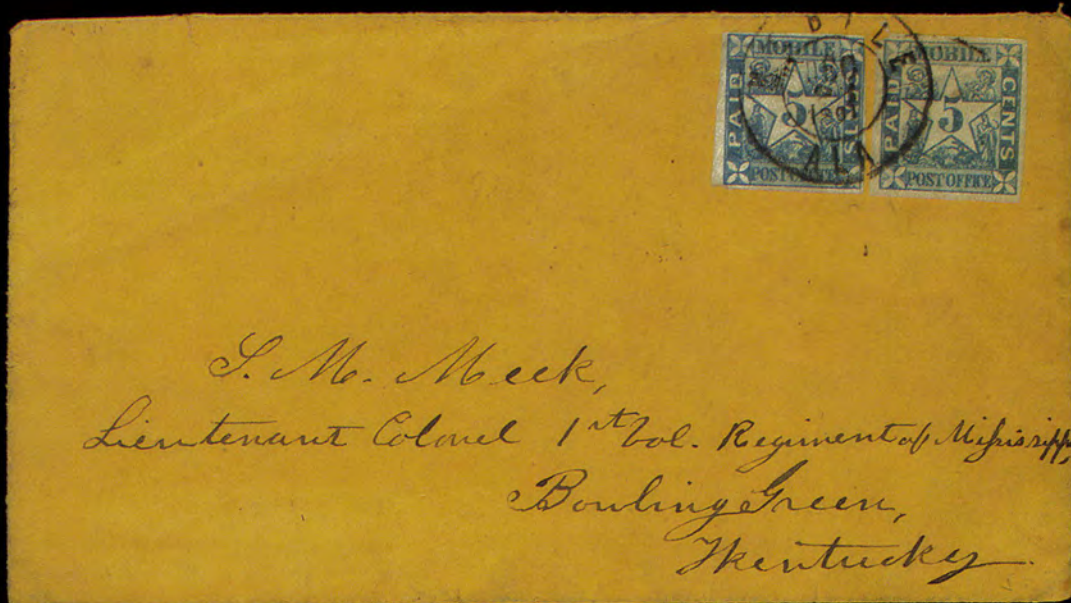 MOBILE
PAID 5 CENTS
POST OFFICE
MOBILE
PAID 5 CENTS
POST OFFICE
BILE
ALA
S. M. Meek,
Lieutenant Colonel 1st Vol. Regiment of Mississippi,
Bowling Green,
Kentucky